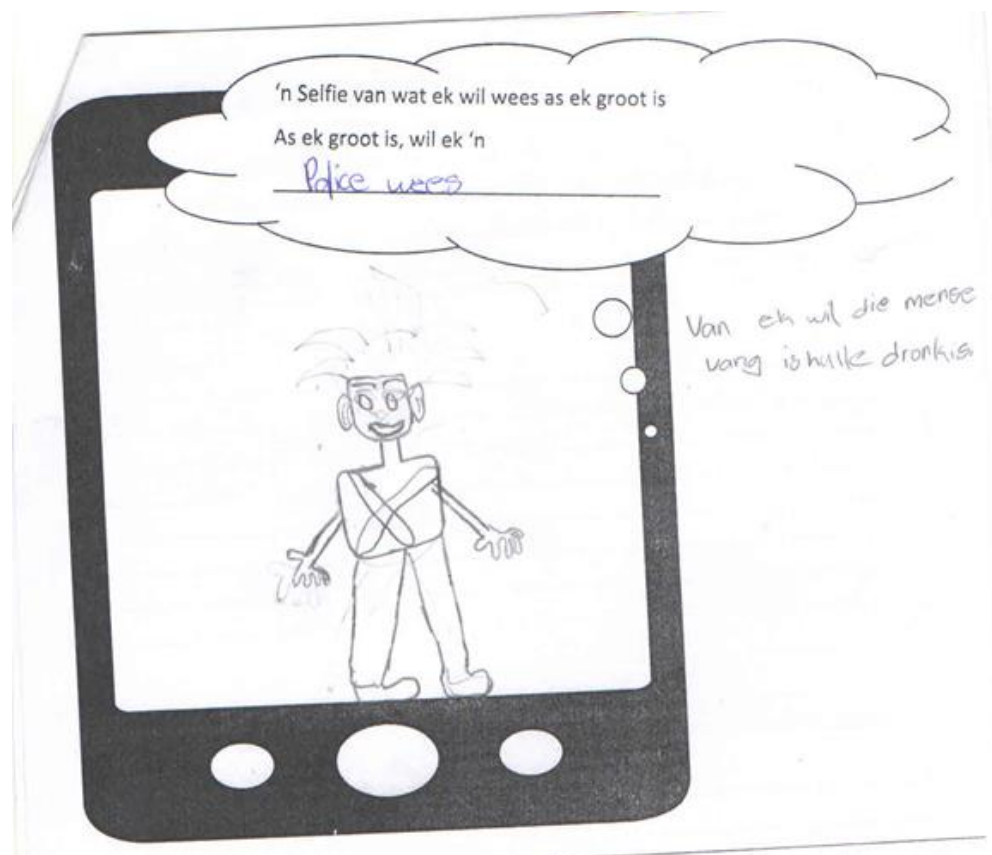 'n Selfie van wat ek wil wees as ek groot is
As ek groot is, wil ek 'n
Police wees
Van ek wil die mense
vang is hulle dronk is